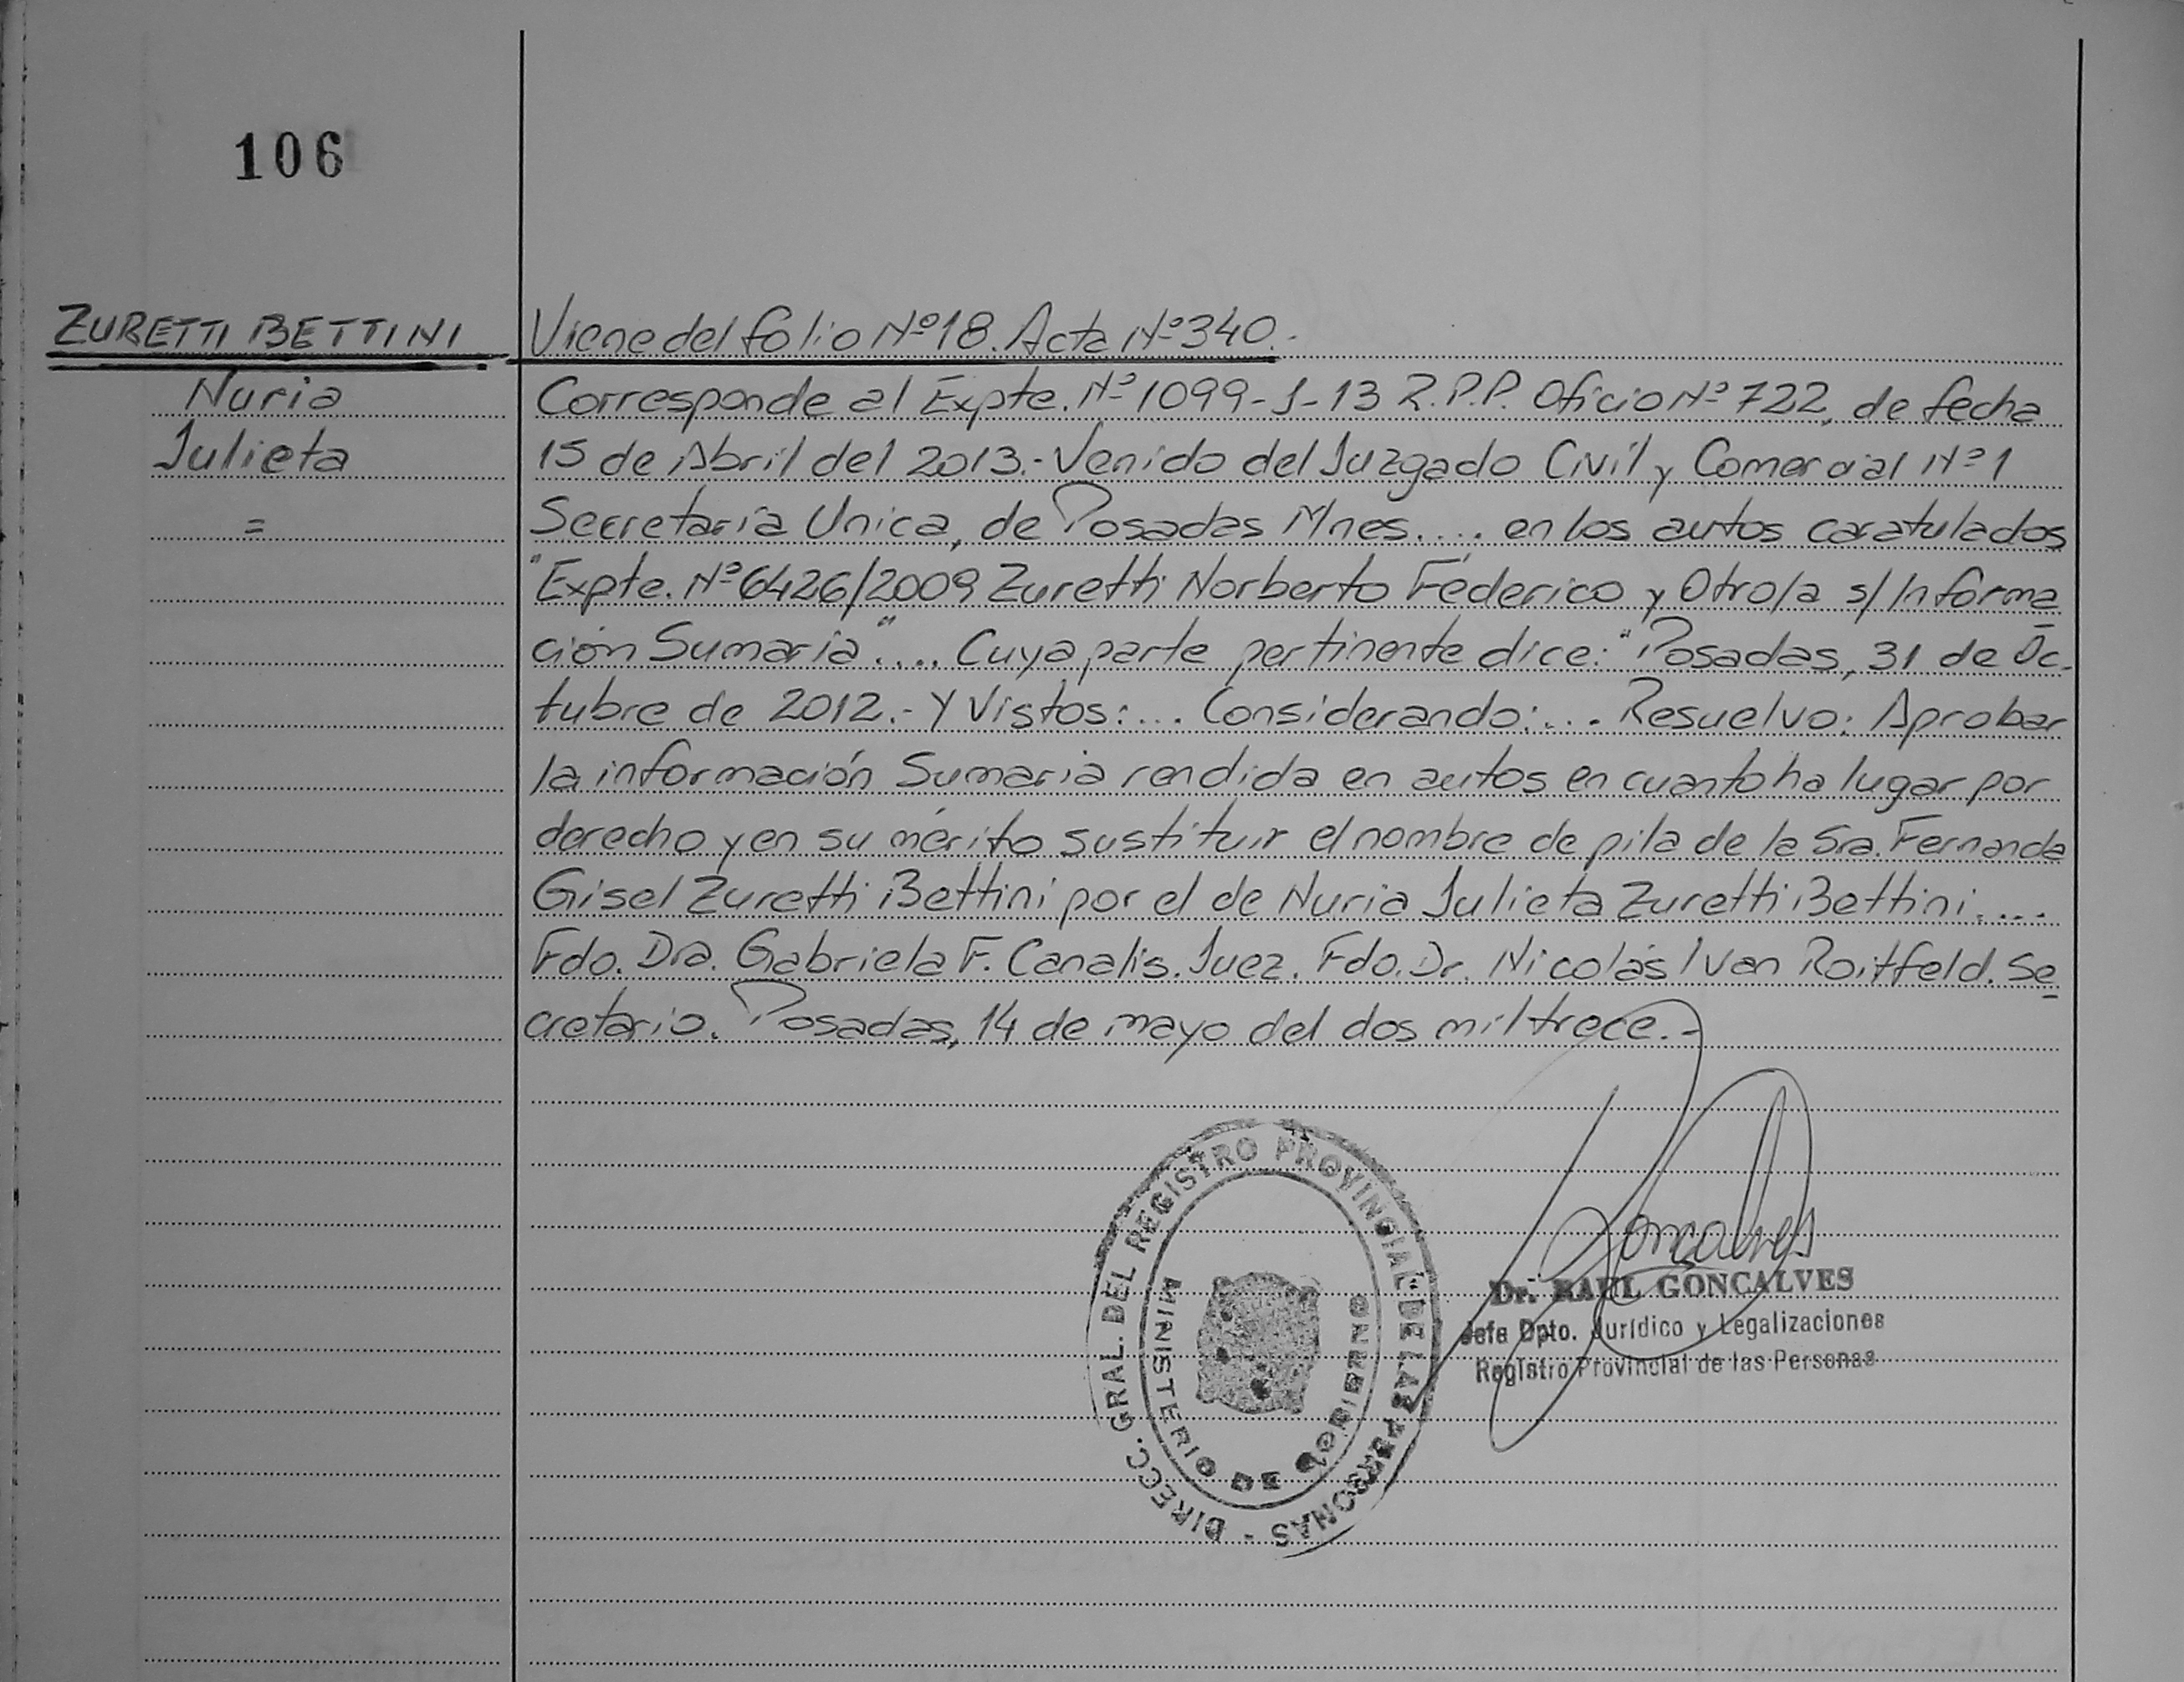 106
ZURETTI BETTINI
Nuria
Julieta
=
Viene del folio Nº18. Acta Nº340.-
Corresponde al Expte. Nº1099-J-13 R.P.P. Oficio Nº722, de fecha
15 de Abril del 2013.- Venido del Juzgado Civil y Comercial Nº1
Secretaría Unica, de Posadas Mnes.... en los autos caratulados
"Expte. Nº6426/2009 Zuretti Norberto Féderico y Otro/a s/ Informa
ción Sumaria".... Cuya parte pertinente dice: "Posadas, 31 de Oc-
tubre de 2012.- Y Vistos:... Considerando:... Resuelvo: Aprobar
la información Sumaria rendida en autos en cuanto ha lugar por
derecho y en su mérito sustituir el nombre de pila de la Sra. Fernanda
Gisel Zuretti Bettini por el de Nuria Julieta Zuretti Bettini....
Fdo. Dra. Gabriela F. Canalis. Juez. Fdo. Dr. Nicolás Ivan Roitfeld. Se
cretario. Posadas, 14 de mayo del dos mil trece.-
DIRECC. GRAL. DEL REGISTRO PROVINCIAL DE LAS PERSONAS -
MINISTERIO DE GOBIERNO
Goncalves
Dr. RAUL GONCALVES
Jefe Dpto. Jurídico y Legalizaciones
Registro Provincial de las Personas